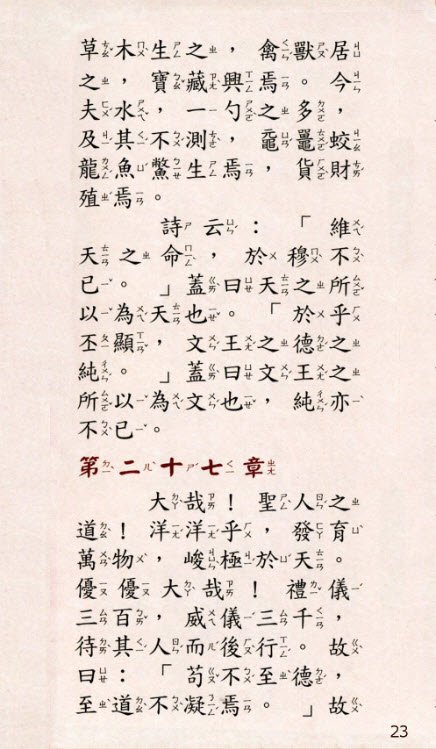 草木生之，禽獸居
之，寶藏興焉。今
夫水，一勺之多，
及其不測，黿鼉蛟
龍魚鱉生焉，貨財
殖焉。
詩云：「維
天之命，於穆不
已。」蓋曰天之所
以為天也。「於乎
丕顯，文王之德之
純。」蓋曰文王之
所以為文也，純亦
不已。
第二十七章
大哉！聖人之
道！洋洋乎，發育
萬物，峻極於天。
優優大哉！禮儀
三百，威儀三千，
待其人而後行。故
曰：「苟不至德，
至道不凝焉。」故
23